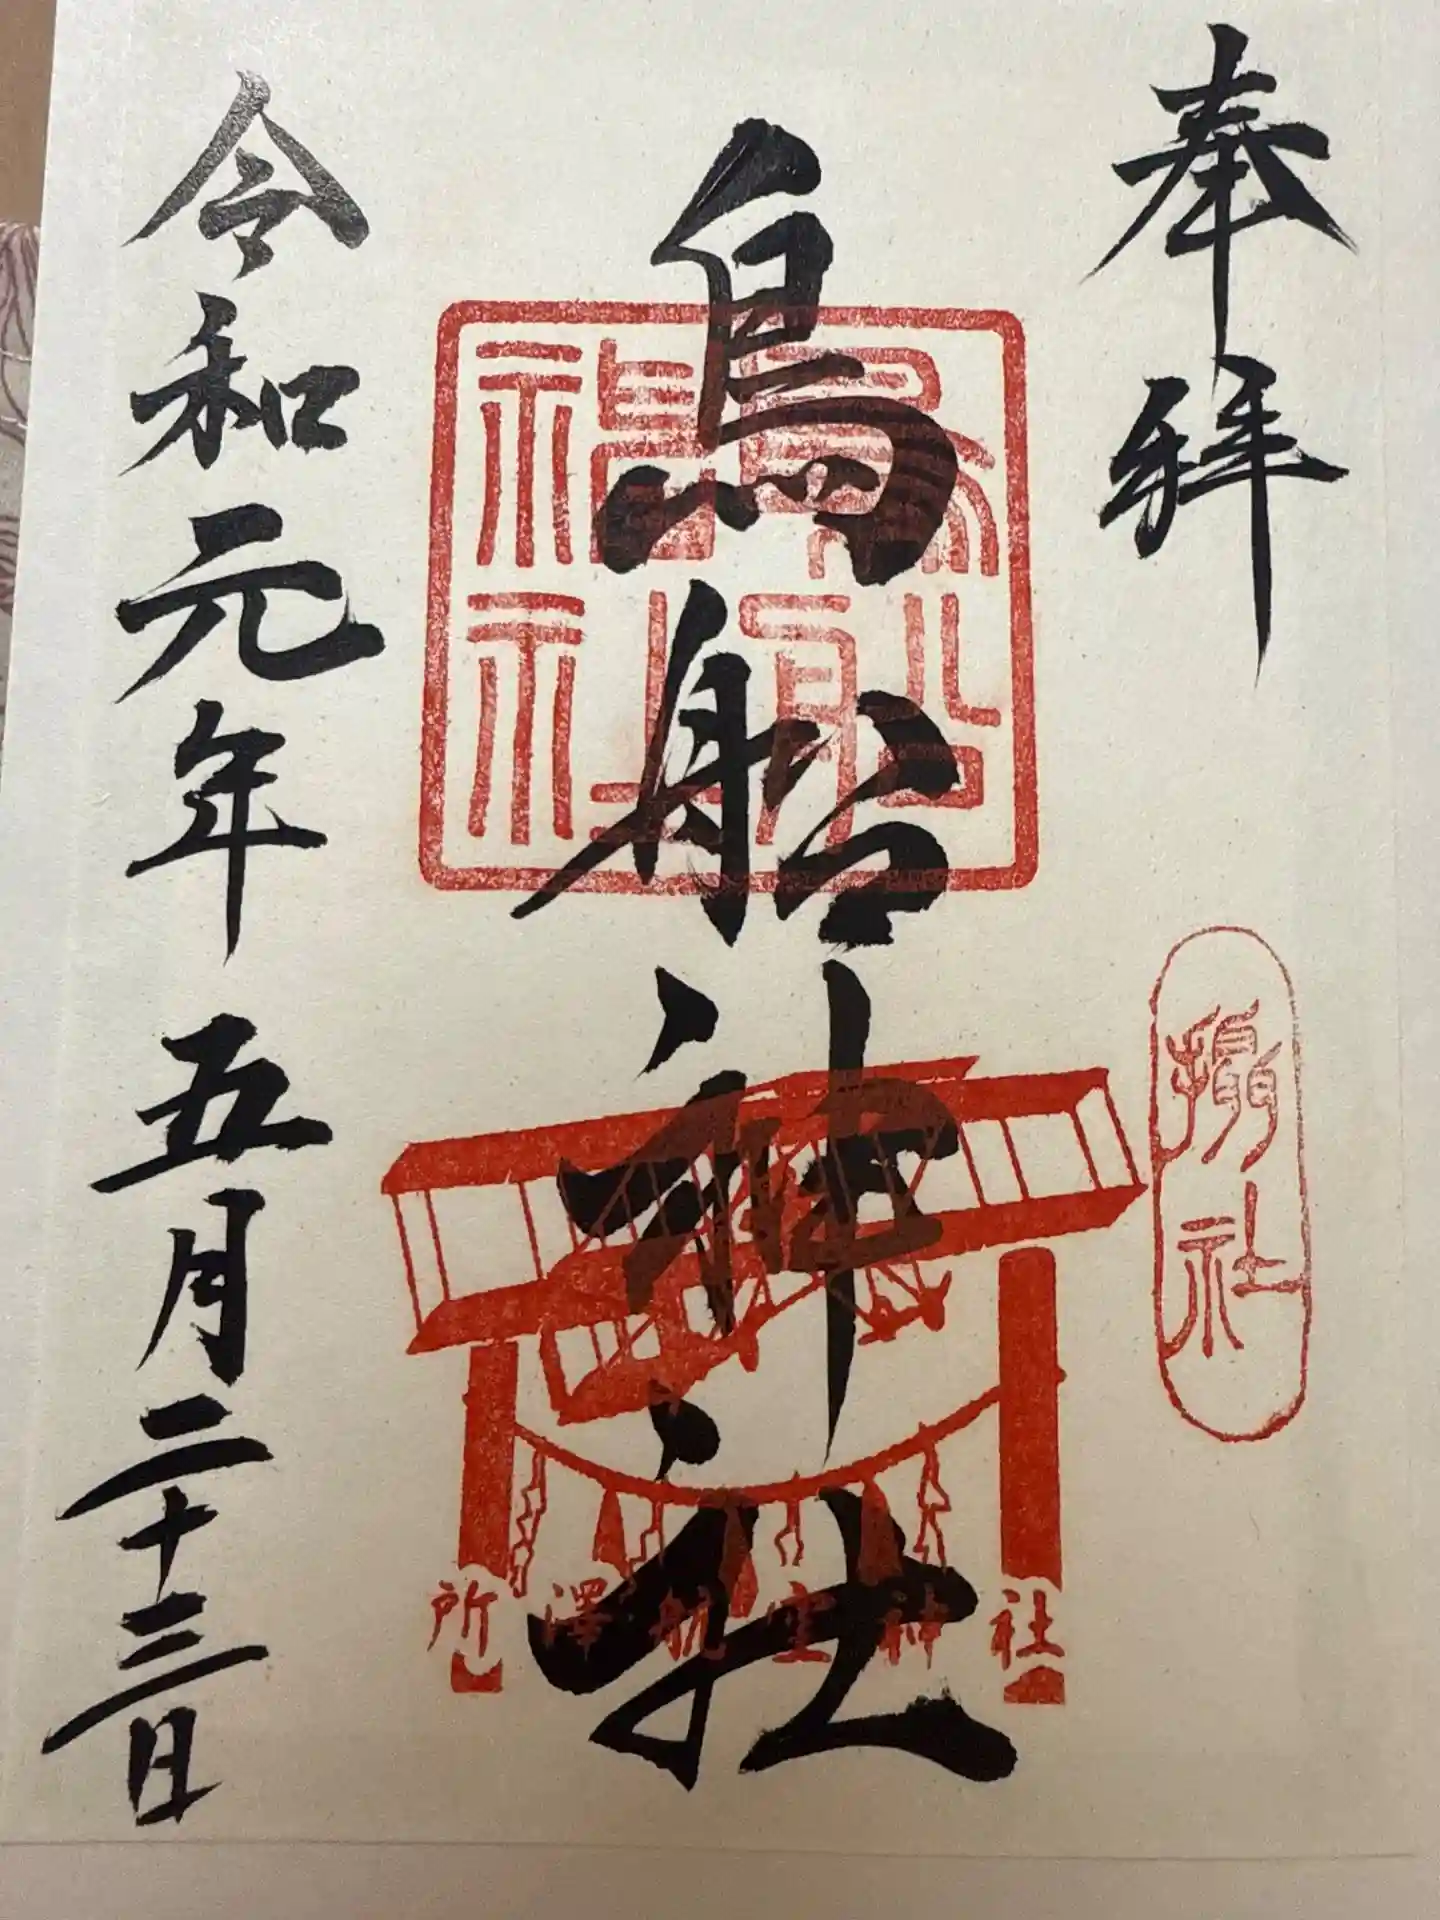 奉拝
攝社
鳥船神社
鳥船
神社
所澤航空神社
令和元年五月二十三日